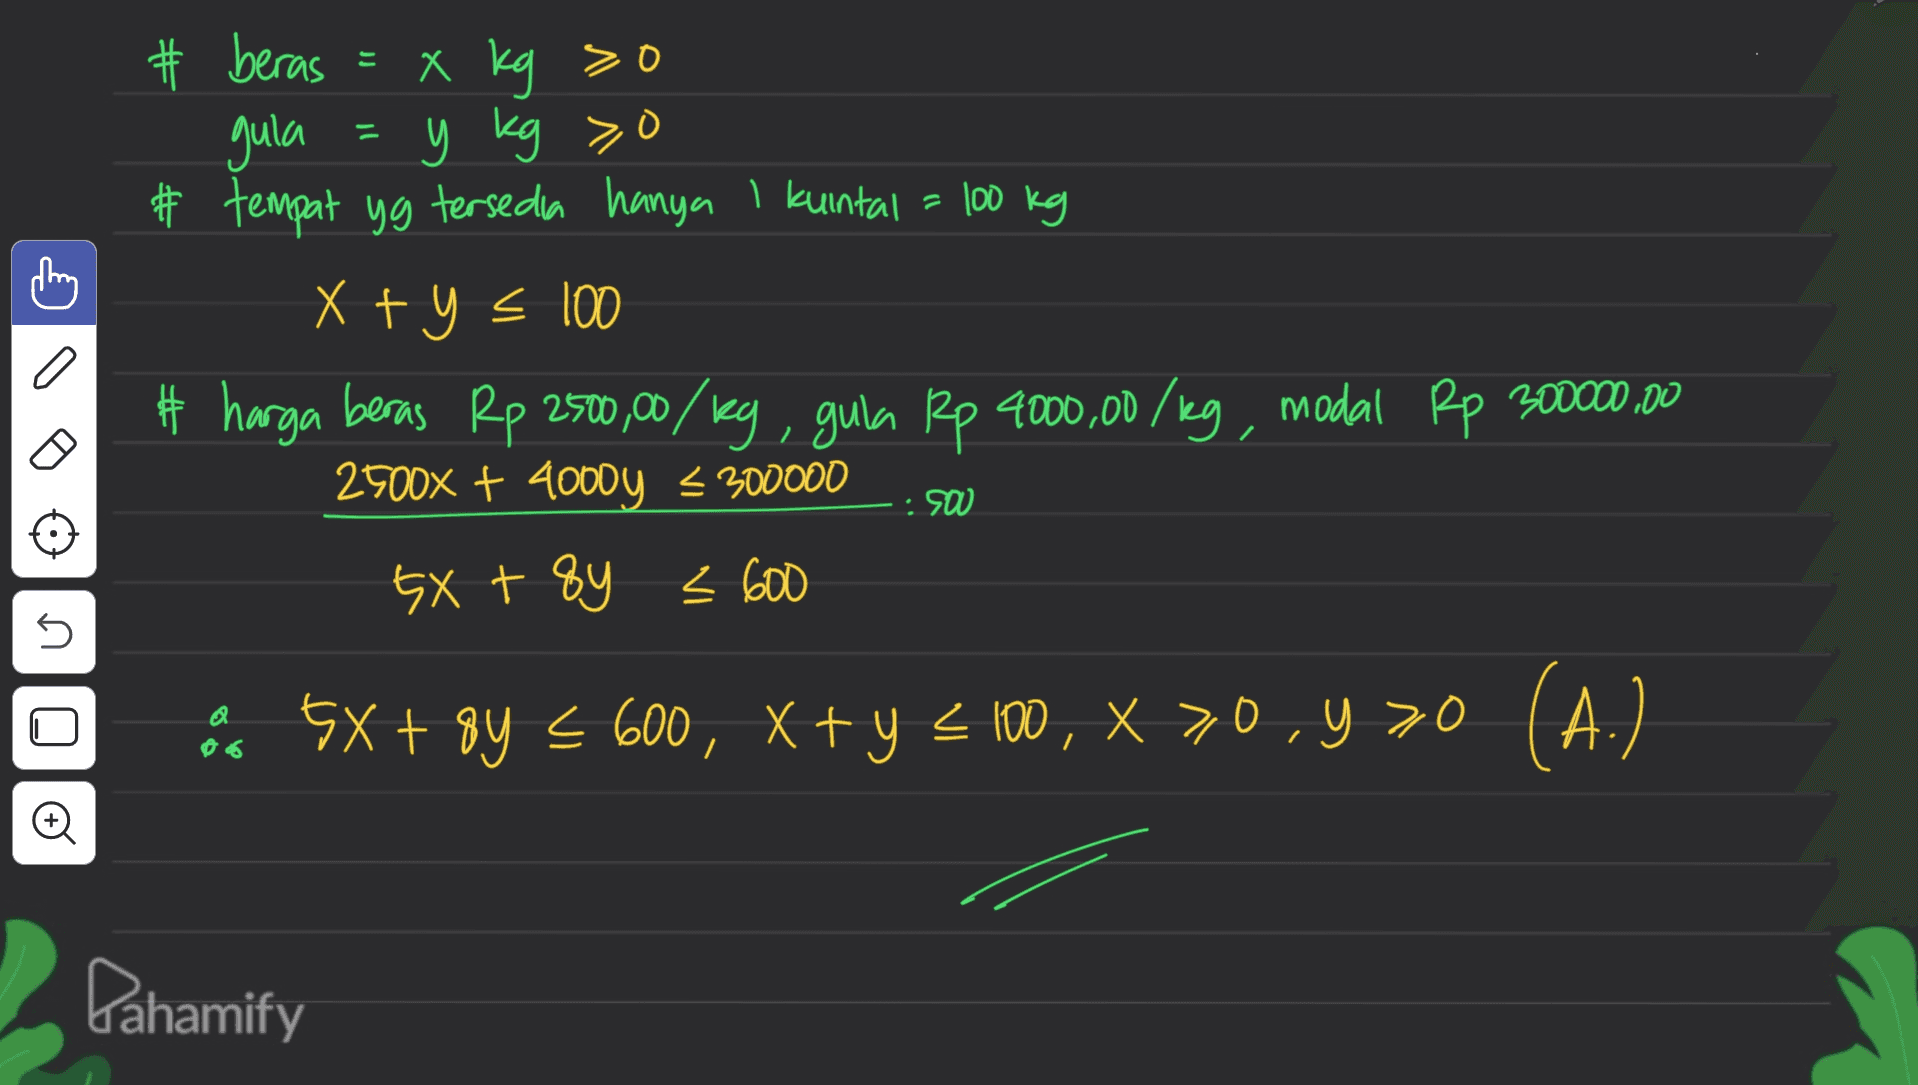 # beras = x kg ⩾ 0
gula = y kg ⩾ 0
# tempat yg tersedia hanya 1 kuintal = 100 kg
x + y ≤ 100
# harga beras Rp 2500,00/kg, gula Rp 4000,00/kg, modal Rp 300000,00
2500x + 4000y ≤ 300000 : 500
5x + 8y ≤ 600
∴ 5x + 8y ≤ 600, x + y ≤ 100, x ⩾ 0, y ⩾ 0 (A.)
Pahamify